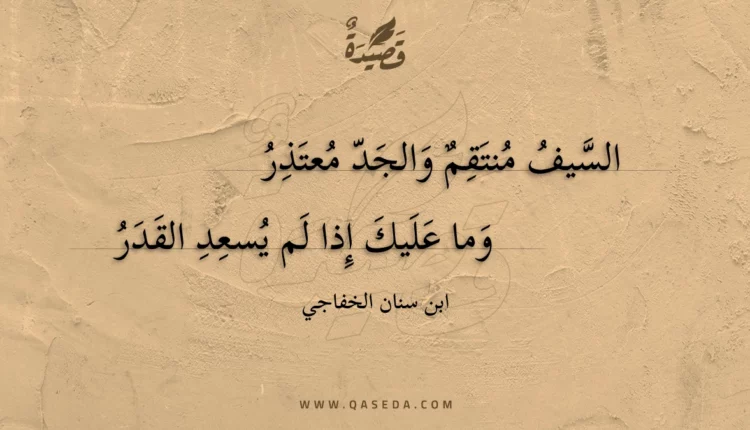 قَصِيْدَةٌ
السَّيفُ مُنتَقِمٌ وَالجَدّ مُعتَذِرُ
وَما عَلَيكَ إِذا لَم يُسعِدِ القَدَرُ
ابن سنان الخفاجي
WWW.QASEDA.COM